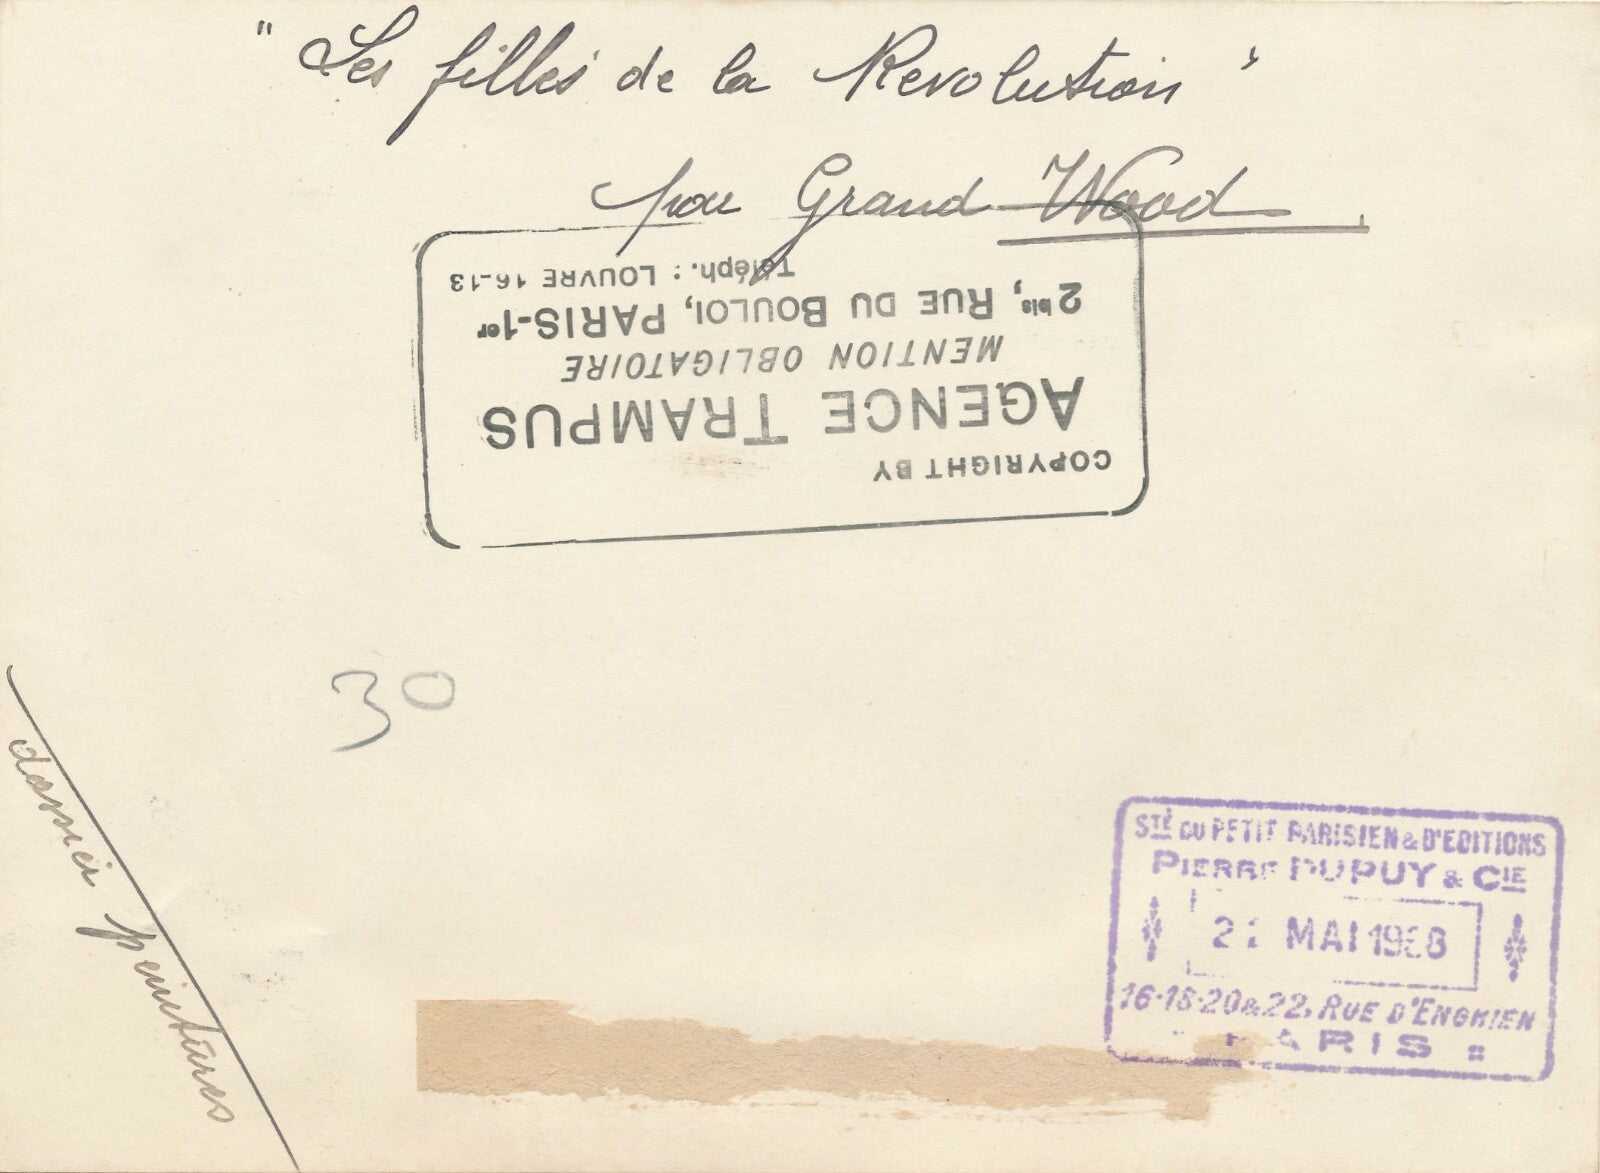 " Les filles de la Revolution "
par Grand Wood
COPYRIGHT BY
AGENCE TRAMPUS
MENTION OBLIGATOIRE
2bis, RUE DU BOULOI, PARIS-1er
Téléph. : LOUVRE 16-13
30
dossier peintures
STÉ DU PETIT PARISIEN & D'EDITIONS
PIERRE DUPUY & CIE
MAI 1938
16·18·20&22, RUE D'ENGHIEN
PARIS